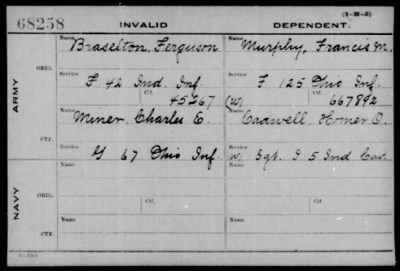 68258 INVALID DEPENDENT. (3-H-3)
Name Braselton, Ferguson Name Murphy, Francis M.
ARMY
ORIG. Service F 42 Ind. Inf. Service F 125 Ohio Inf.
Ctf. 45267 (W) Ctf. 667892
Name Miner, Charles E. Name Cadwell, Homer O.
CTF. Service G 67 Ohio Inf. Service (W) Sgt. I 5 Ind Cav.
NAVY
Name Name
ORIG. Ctf. Ctf.
Name Name
CTF.